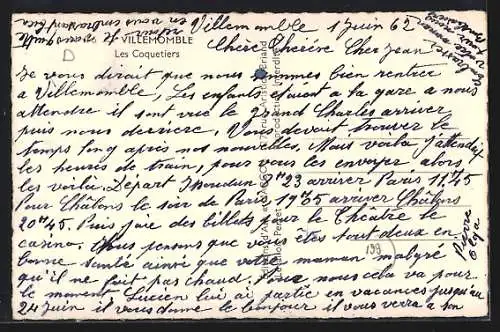 Villemomble 1 Juin 62
VILLEMOMBLE
Les Coquetiers
Chère Cher Jean
Je vous dirait que nous sommes bien rentrer
a Villemomble, Les enfants étaient a la gare a nous
attendre il sont vue le Grand Charles arriver
puis nous derriere, Vous devait trouver le
temps long après nos nouvelles. Mais voila j'attendait
les heures de train, pour vous les envoyer alors
les voila. Départ Issoudun 8 H 23 arriver Paris 11 45
Pour Châlons le soir de Paris 19 H 05 arriver Châlons
20 H 45. Puis j'aie des billets pour le Théâtre le
casino. Nous pensons que vous êtes tout deux en
bonne santé ainsi que votre maman malgré
qu'il ne fait pas chaud. Pour nous cela va pour
le moment Lucien lui ai partie en vacances jusqu'au
24 Juin il vous donne le bonjour il vous verra a son
Pierre
Olga
199